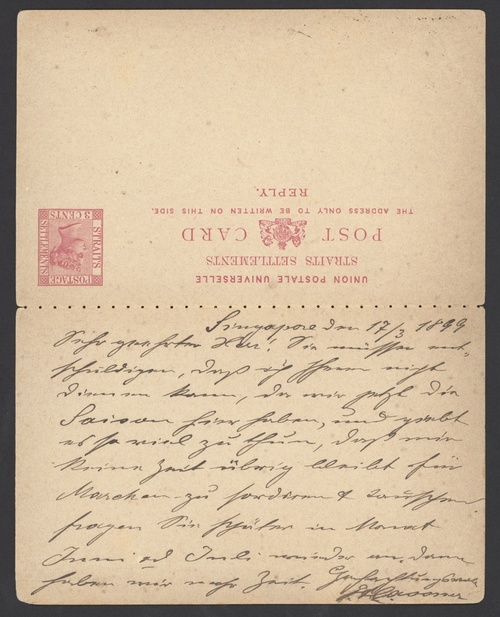 UNION POSTALE UNIVERSELLE
STRAITS SETTLEMENTS
POST CARD
THE ADDRESS ONLY TO BE WRITTEN ON THIS SIDE.
REPLY.
STRAITS
SETTLEMENTS
POSTAGE
3 CENTS
Singapore den 17/3 1899
Sehr geehrter Herr! Sie müssen ent-
schuldigen, daß ich Ihnen nicht
dienen kann, da wir jetzt die
Saison hier haben, und giebt
es so viel zu thun, daß mir
keine Zeit übrig bleibt für
Marken zu sortiren & tauschen
fragen Sie später im Monat
Juni od Juli wieder an, dann
haben wir mehr Zeit. Hochachtungsvoll